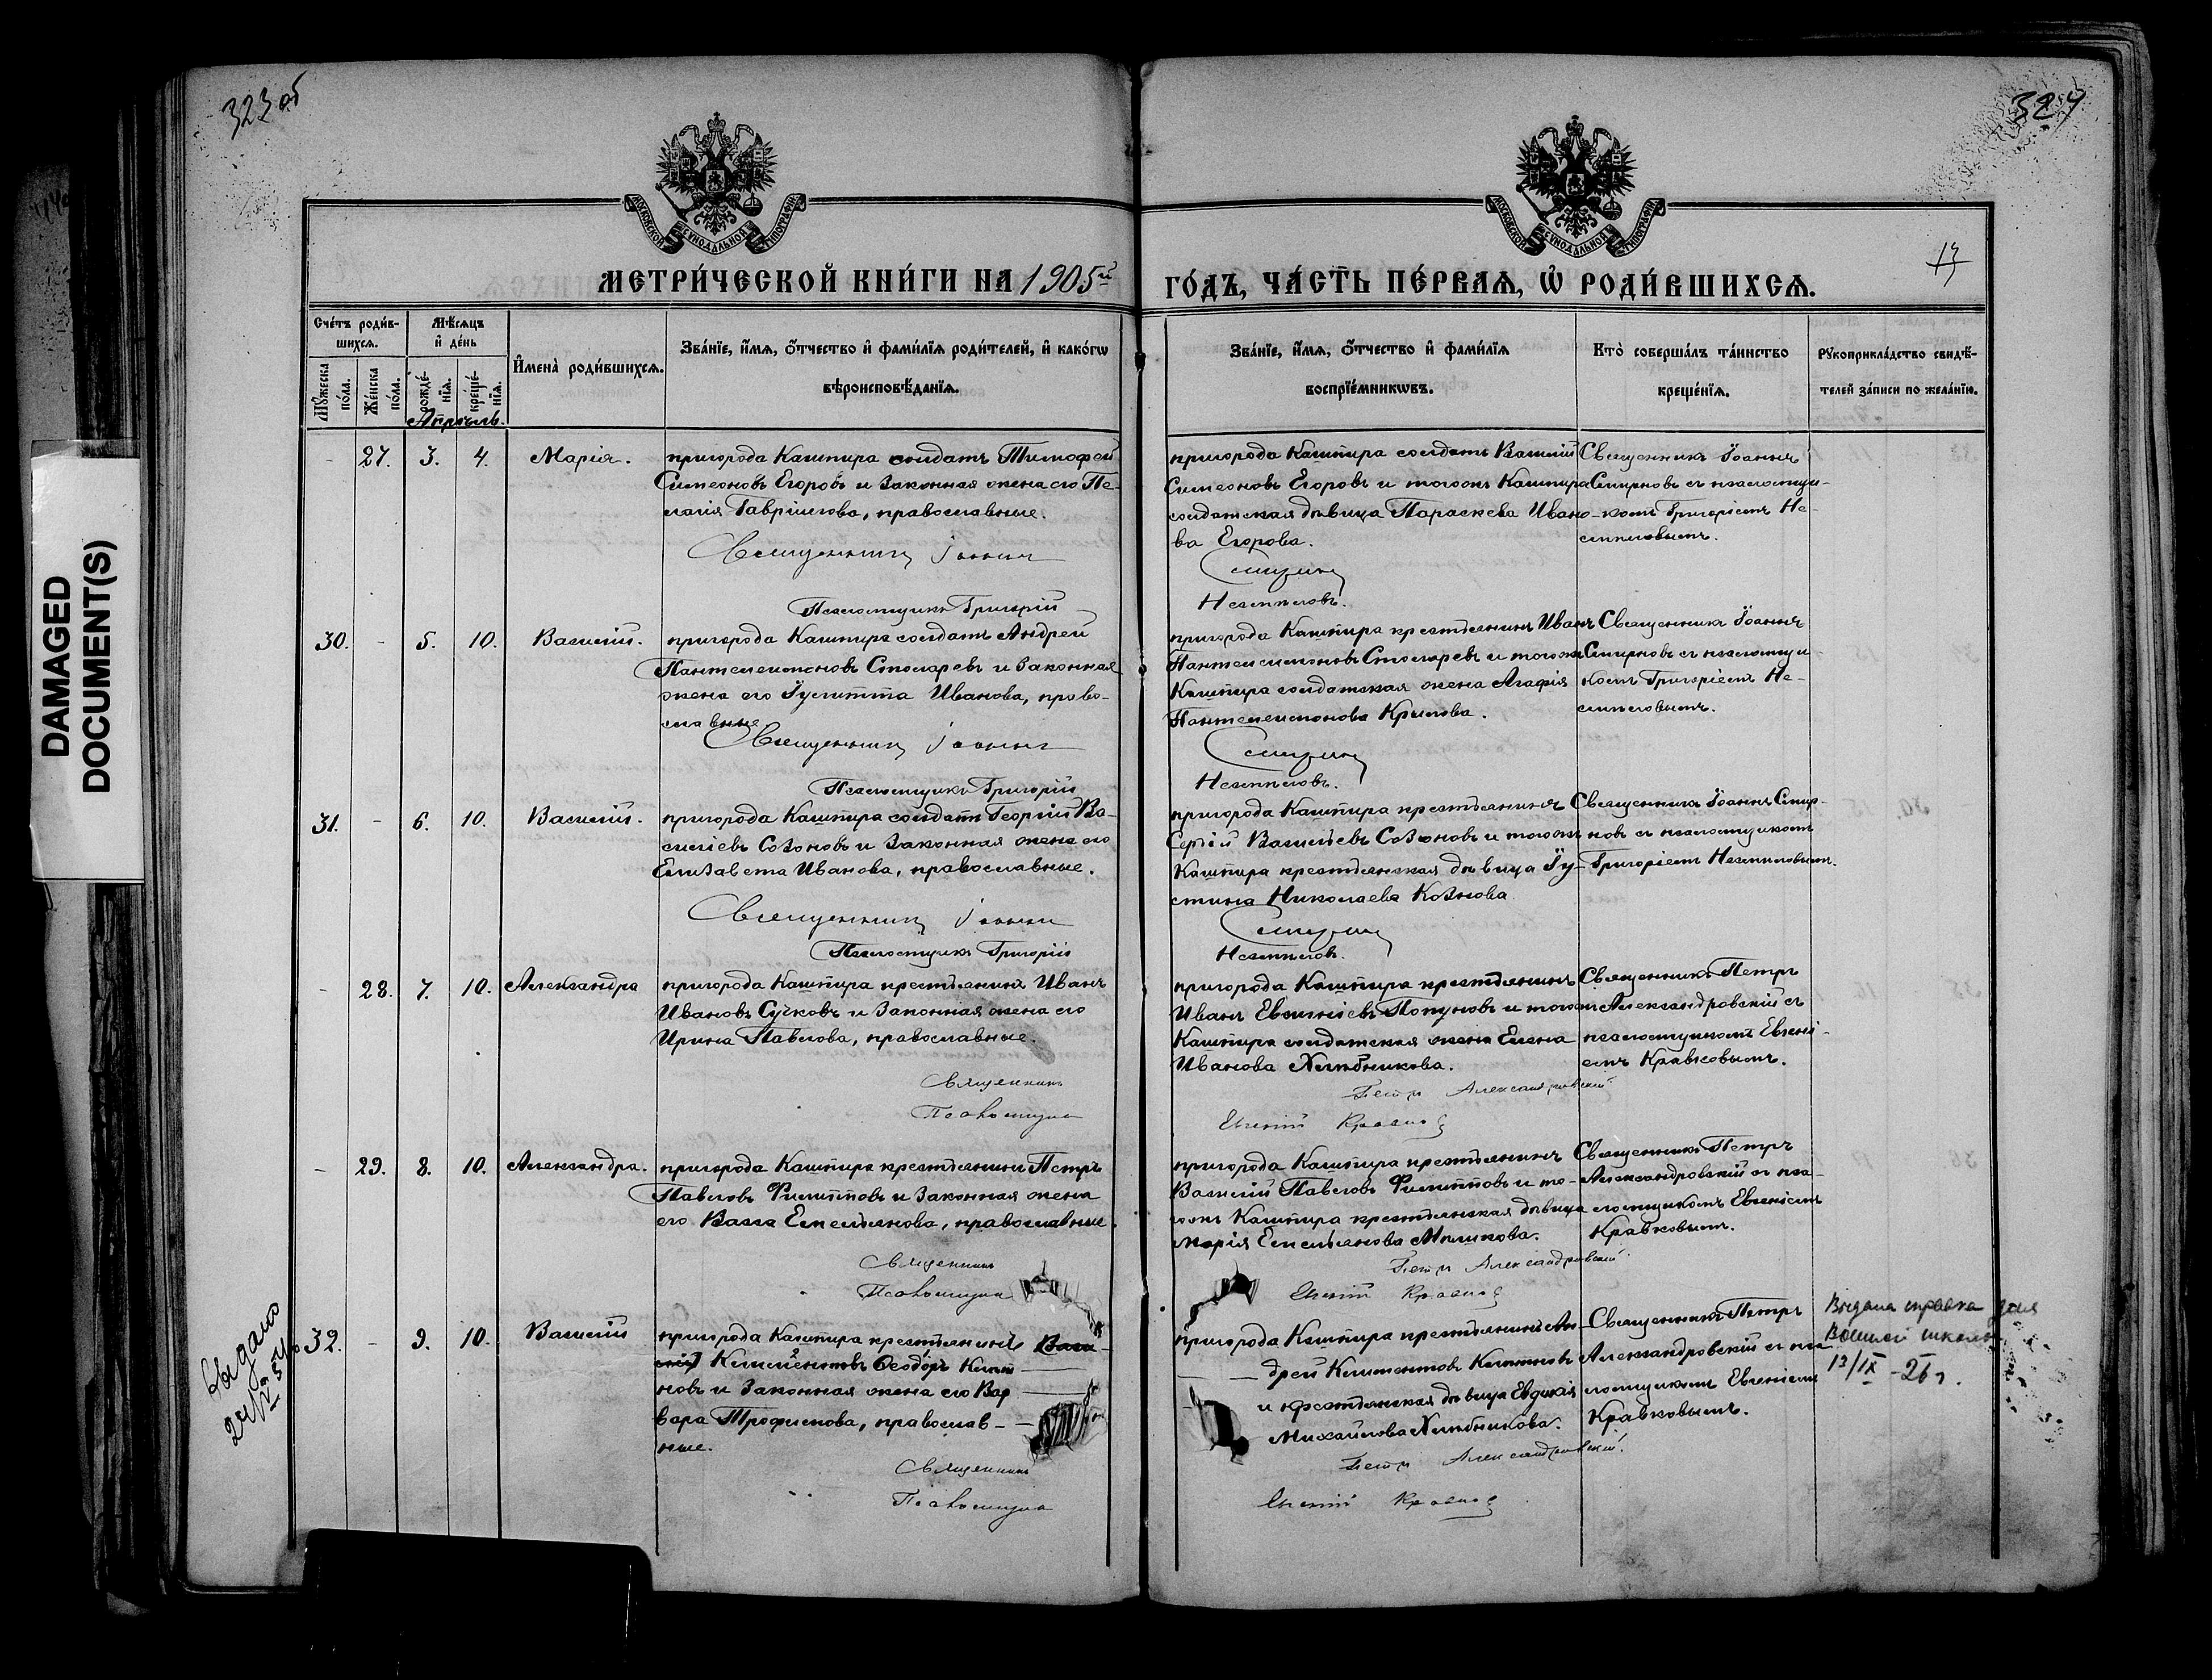 323 об
324
13
DAMAGED
DOCUMENT(S)
МОСКОВСКОЙ СѴНОДАЛЬНОЙ ТИПОГРАФІИ
МОСКОВСКОЙ СѴНОДАЛЬНОЙ ТИПОГРАФІИ
МЕТРИ́ЧЕСКОЙ КНИ́ГИ НА 1905й
ГО́ДЪ, ЧА́СТЬ ПЕ́РВАѦ, Ѡ҆ РОДИ́ВШИХСѦ.
Сче́тъ роди́в-
шихсѧ.
Мꙋ́жеска
по́ла.
Же́нска
по́ла.
Мѣ́сѧцъ
и҆ де́нь
рожде́-
нїѧ.
креще́-
нїѧ.
И҆мена̀ роди́вшихсѧ.
Зва́нїе, и҆́мѧ, ѻ҆́тчество и҆ фами́лїѧ роди́телей, и҆ како́гѡ
вѣроисповѣ́данїѧ.
Зва́нїе, и҆́мѧ, ѻ҆́тчество и҆ фами́лїѧ
воспрїе́мникѡвъ.
Кто̀ соверша́лъ та́инство
креще́нїѧ.
Рꙋкоприкла́дство свидѣ́-
телей за́писи по жела́нїю.
Апрѣль.
- 27. 3. 4. Марія.
пригорода Кашпира солдатъ Тимофей
Симеоновъ Егоровъ и законная жена его Пе-
лагія Гавріилова, православные.
Священникъ Іоаннъ
Псаломщикъ Григорій
пригорода Кашпира солдатъ Василій
Симеоновъ Егоровъ и тогоже Кашпира
солдатская дѣвица Параскева Ивано-
ва Егорова.
Смирновъ
Незнмловъ.
Священникъ Іоаннъ
Смирновъ съ псаломщи-
комъ Григоріемъ Не-
30. - 5. 10. Василій.
пригорода Кашпира солдатъ Андрей
Пантелеимоновъ Столяревъ и законная
жена его Іулитта Иванова, право-
славные.
Священникъ Іоаннъ
Псаломщикъ Григорій
пригорода Кашпира крестьянинъ Иванъ
Пантелеимоновъ Столяревъ и тогоже
Кашпира солдатская жена Агафія
Пантелеимонова Крылова.
Смирновъ
Священникъ Іоаннъ
Смирновъ съ псаломщи
комъ Григоріемъ Не-
31. - 6. 10. Василій.
пригорода Кашпира солдатъ Георгій Ва-
сильевъ Созоновъ и законная жена его
Елизавета Иванова, православные.
Священникъ Іоаннъ
Псаломщикъ Григорій
пригорода Кашпира крестьянинъ
Сергій Васильевъ Созоновъ и тогоже
Кашпира крестьянская дѣвица Іу-
стина Николаева Козлова
Смирновъ
Священникъ Іоаннъ Смир-
новъ съ псаломщикомъ
Григоріемъ
- 28. 7. 10. Александра
пригорода Кашпира крестьянинъ Иванъ
Ивановъ Сучковъ и законная жена его
Ирина Павлова, православные.
Священникъ
Псаломщикъ
пригорода Кашпира крестьянинъ
Иванъ Евгеніевъ Попуновъ и тогоже
Кашпира солдатская жена Елена
Иванова Хлѣбникова.
Петръ Александровскій
Евгеній Кравковъ
Священникъ Петръ
Александровскій съ
псаломщикомъ Евгені-
емъ Кравковымъ.
- 29. 8. 10. Александра.
пригорода Кашпира крестьянинъ Петръ
Павловъ Филипповъ и законная жена
его Васса Емельянова, православные.
Священникъ
Псаломщикъ
пригорода Кашпира крестьянинъ
Василій Павловъ Филипповъ и то-
гоже Кашпира крестьянская дѣвица
Марія Емельянова
Петръ Александровскій
Евгеній Кравковъ
Священникъ Петръ
Александровскій съ пса-
ломщикомъ Евгеніемъ
Кравковымъ.
Выдано
32. - 9. 10. Василій
пригорода Кашпира крестьянинъ
Климентовъ Ѳеодоръ
новъ и законная жена его Вар
вара Трофимова, православ-
ные.
Священникъ
Псаломщикъ
пригорода Кашпира крестьянинъ Ан-
дрей Климентовъ
и крестьянская дѣвица Евдокія
Михайлова Хлѣбникова.
Петръ Александровскій
Евгеній Кравковъ
Священникъ Петръ
Александровскій съ пса-
ломщикомъ Евгеніемъ
Кравковымъ.
Выдана справка для
13/IX - 26 г.